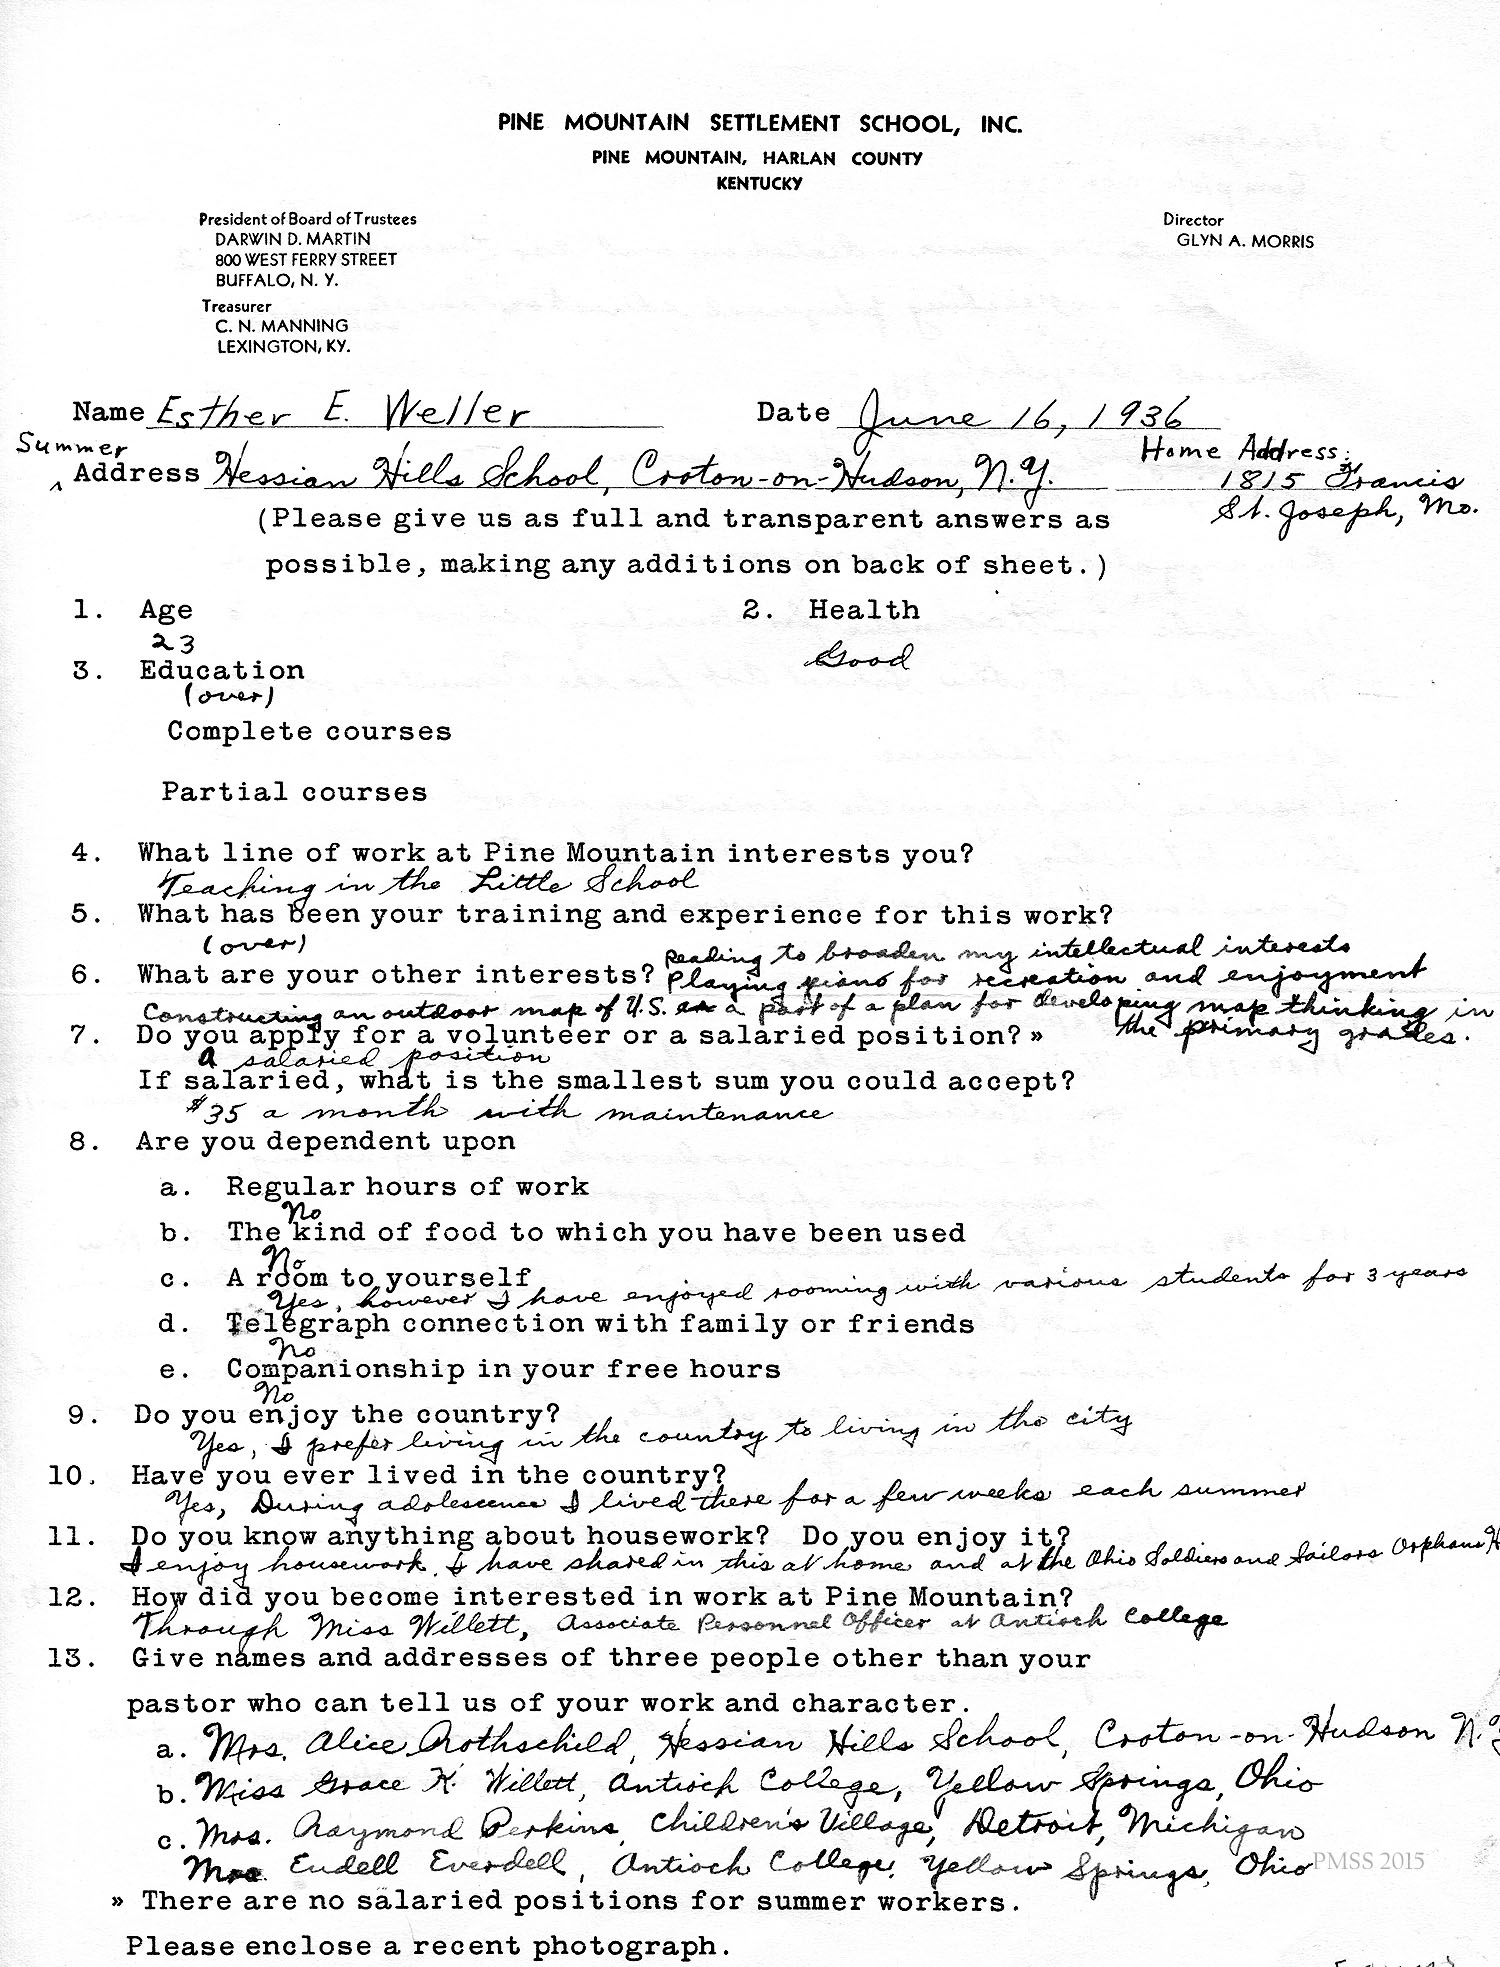 PINE MOUNTAIN SETTLEMENT SCHOOL, INC.
PINE MOUNTAIN, HARLAN COUNTY
KENTUCKY
President of Board of Trustees
DARWIN D. MARTIN
800 WEST FERRY STREET
BUFFALO, N. Y.
Treasurer
C. N. MANNING
LEXINGTON, KY.
Director
GLYN A. MORRIS
Name Esther E. Weller Date June 16, 1936
Summer
^ Address Hessian Hills School, Croton-on-Hudson, N.Y.
Home Address:
1815 Francis
St. Joseph, Mo.
(Please give us as full and transparent answers as
possible, making any additions on back of sheet.)
1. Age 2. Health
23 Good
3. Education
(over)
Complete courses
Partial courses
4. What line of work at Pine Mountain interests you?
Teaching in the Little School
5. What has been your training and experience for this work?
(over)
6. What are your other interests? Reading to broaden my intellectual interests
Playing piano for recreation and enjoyment
Constructing an outdoor map of U.S. as a part of a plan for developing map thinking in
the primary grades.
7. Do you apply for a volunteer or a salaried position? »
A salaried position
If salaried, what is the smallest sum you could accept?
$35 a month with maintenance
8. Are you dependent upon
a. Regular hours of work
No
b. The kind of food to which you have been used
No
c. A room to yourself
Yes, however I have enjoyed rooming with various students for 3 years
d. Telegraph connection with family or friends
No
e. Companionship in your free hours
No
9. Do you enjoy the country?
Yes, I prefer living in the country to living in the city
10. Have you ever lived in the country?
Yes, During adolescence I lived there for a few weeks each summer
11. Do you know anything about housework? Do you enjoy it?
I enjoy housework. I have shared in this at home and at the Ohio Soldiers and Sailors Orphans H
12. How did you become interested in work at Pine Mountain?
Through Miss Willett, Associate Personnel Officer at Antioch College
13. Give names and addresses of three people other than your
pastor who can tell us of your work and character.
a. Mrs. Alice Rothschild, Hessian Hills School, Croton-on-Hudson N.Y
b. Miss Grace K. Willett, Antioch College, Yellow Springs, Ohio
c. Mrs. Raymond Perkins, Children's Village, Detroit, Michigan
Mrs. Eudell Everdell, Antioch College, Yellow Springs, Ohio
PMSS 2015
» There are no salaried positions for summer workers.
Please enclose a recent photograph.